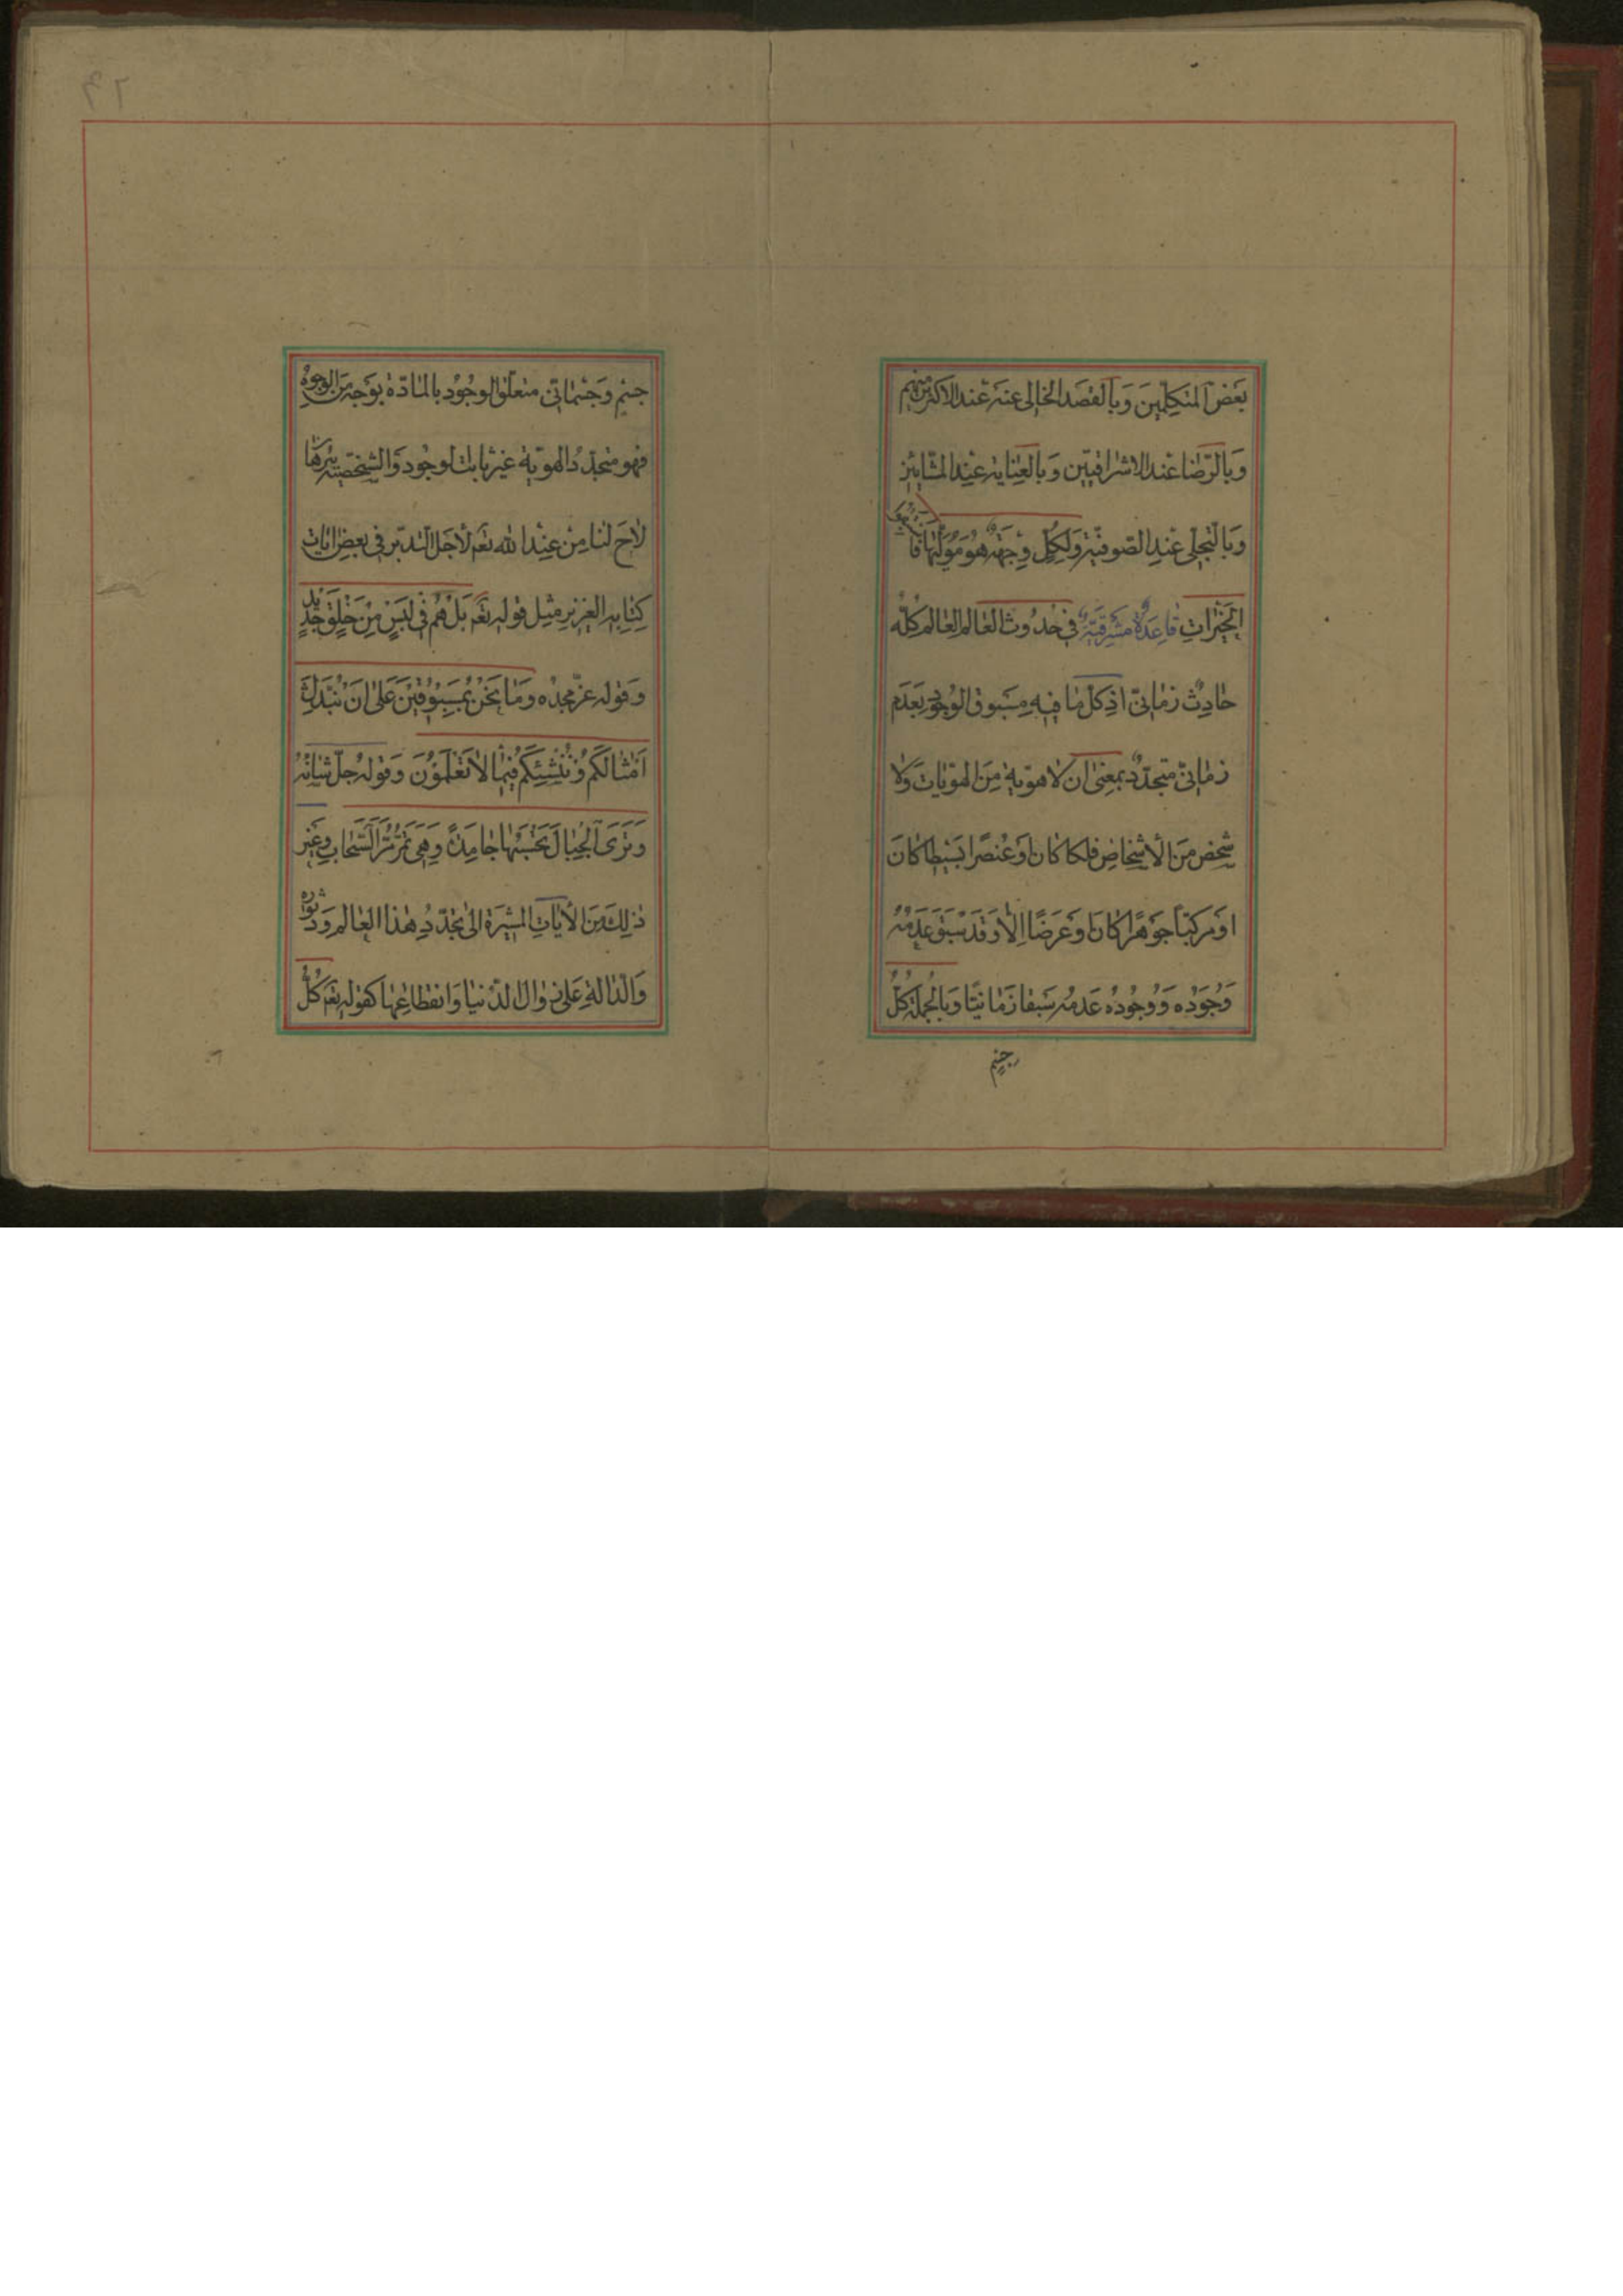 بَعْضِ المُتَكَلِّمِينَ وَبِالقَصدِ الخالِى عنهُ عندَ الاكثرِ مِنهُم
وَبِالرِّضا عِندَ الاشراقيّينَ وَبالعِنايةِ عِندَ المشّائينَ
وَبالتّجلّى عندِ الصّوفيّةِ وَلِكُلٍّ وِجهَةٌ هُوَ مُوَلّيها فَاستَبِقوا
الخَيْراتِ قاعِدَةٌ مَشرقيّةٌ فى حُدُوث العالمِ العالم كلّه
حادِثٌ زمانىّ اذ كلّ ما فيهِ مَسبوق الوجودِ بعَدَم
زمانىّ متجدّد بمعنى ان لا هويّة مِنَ الهويّاتِ وَلا
شخص مِنَ الأشخاصِ فلكا كان او عُنصرًا بَسيطا كانَ
او مركبّاً جوهرًا كانَ او عَرَضًا الّا وَقَد سَبَقَ عَدَمُهُ
وُجودَه وَ وُجُودُه عَدمهُ سَبقا زَمانيًّا وَبِالجُملةِ كلّ
جسْمٍ
جسْمٍ وَجسْمانىّ متعلّق الوجُود بالمادّة بوَجهٍ مِنَ الوجوهِ
فهو متجدّدُ الهويّة غيرُ ثابت الوجُود وَ الشّخصيّة
لاحَ لنا مِن عِندِ الله تعَم لأجَل التّدبّرِ فى بعضِ آيات
كِتابِهِ العزيزِ مِثل قوله تعَم بَلْ هُمْ فى لَبسٍ مِنْ خَلقٍ جَديدٍ
وَقوله عزّ مجدُه وَما نَحنُ بِمَسبُوقينَ عَلى انَ نُبَدّلَ
أمثالَكُم وَنُنشِئَكُم فيما لا تَعلَمُونَ وَقولهُ جلّ شانُهُ
وَتَرَى الجِبالَ تَحسَبُها جامِدَةً وَهِىَ تَمُرُّ مَرَّ السَّحابِ وغَير
ذلِكَ مِنَ الأياتِ المشيرَة الى تجدّدُ هذا العالم وَ دثوره
وَالدّالة عَلى زوال الدّنيا وَانقطاعِها كقوله تعَم كُلُّ